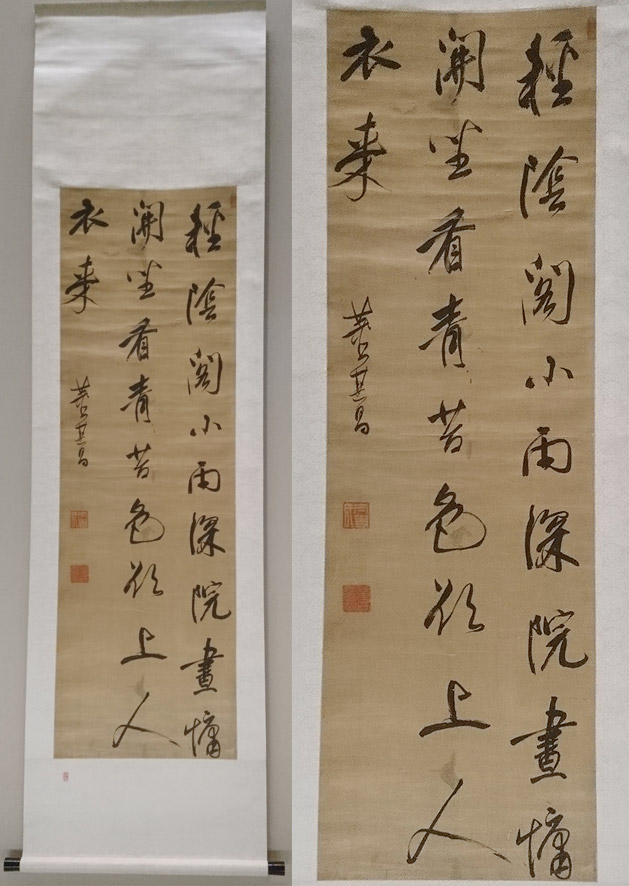 輕陰閣小雨深院晝慵
開坐看青苔色欲上人
衣來
董其昌
輕陰閣小雨深院晝慵
開坐看青苔色欲上人
衣來
董其昌